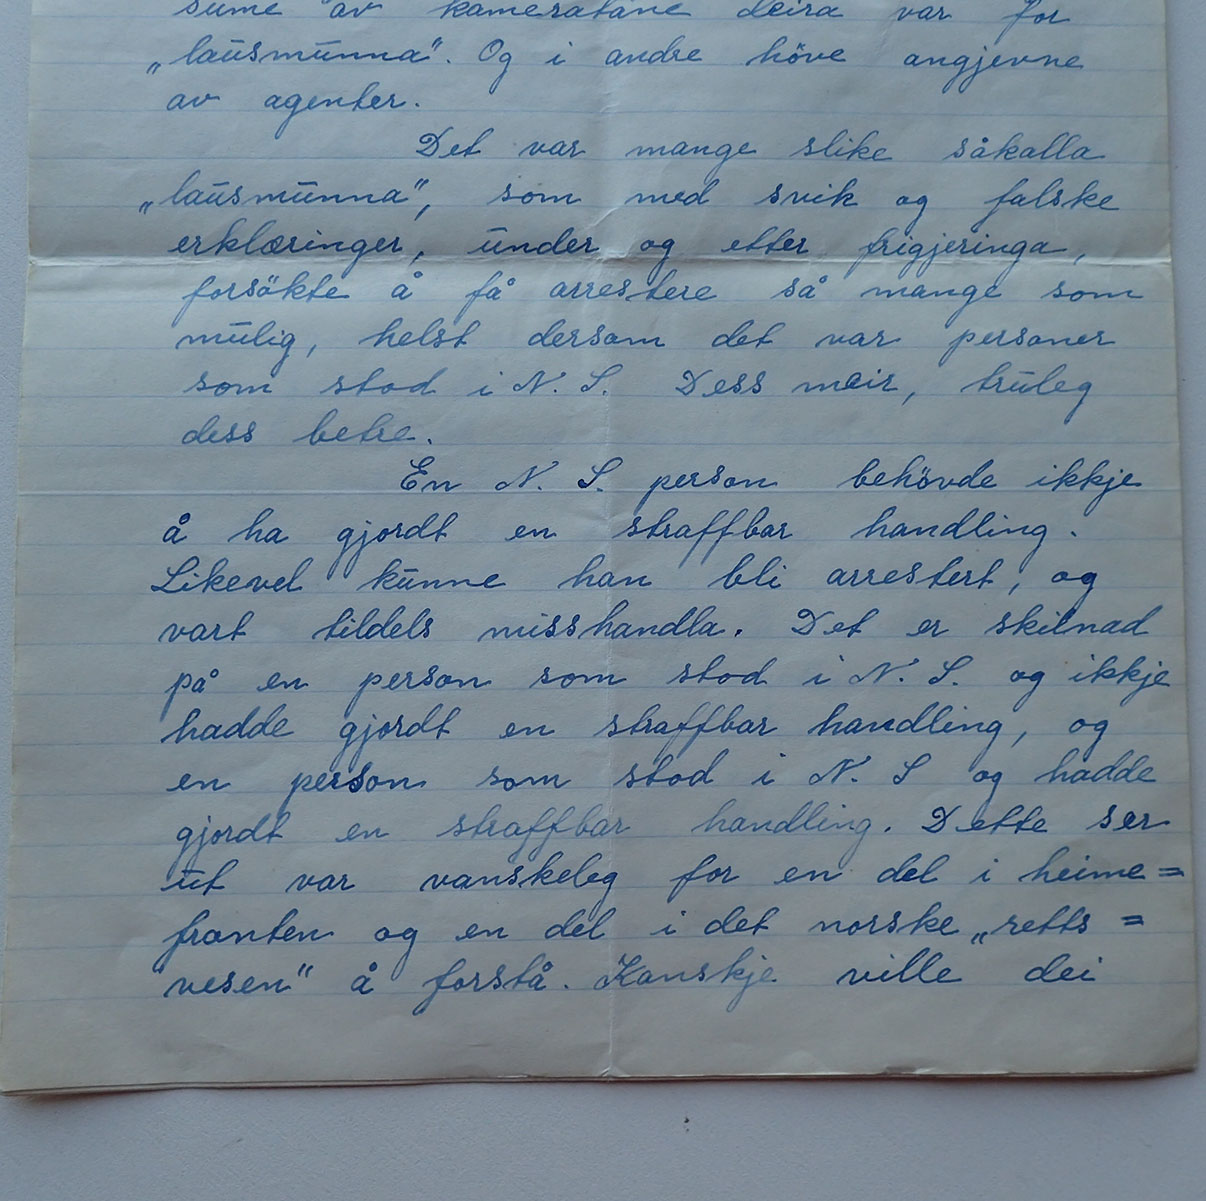 sume av kameratane deira var for
„lausmunna". Og i andre höve angjevne
av agenter.
Det var mange slike såkalla
„lausmunna", som med svik og falske
erklæringer, under og etter frigjeringa,
forsökte å få arrestere så mange som
mulig, helst dersom det var personer
som stod i N. S. Dess meir, truleg
dess betre.
En N. S. person behövde ikkje
å ha gjordt en straffbar handling.
Likevel kunne han bli arrestert, og
vart tildels misshandla. Det er skilnad
på en person som stod i N. S. og ikkje
hadde gjordt en straffbar handling, og
en person som stod i N. S og hadde
gjordt en straffbar handling. Dette ser
ut var vanskeleg for en del i heime=
fronten og en del i det norske „retts=
vesen" å forstå. Kanskje ville dei